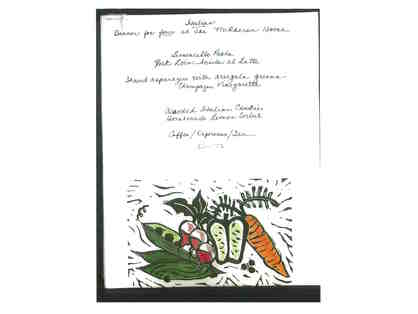 Italian
Dinner for four at the
Limoncello Pasta
Pork Loin Arista al Latte
Shaved asparagus with arugula greens
Champagne Vinaigrette
Assorted Italian Cookies
Homemade Lemon Sorbet
Coffee/Espresso/Tea